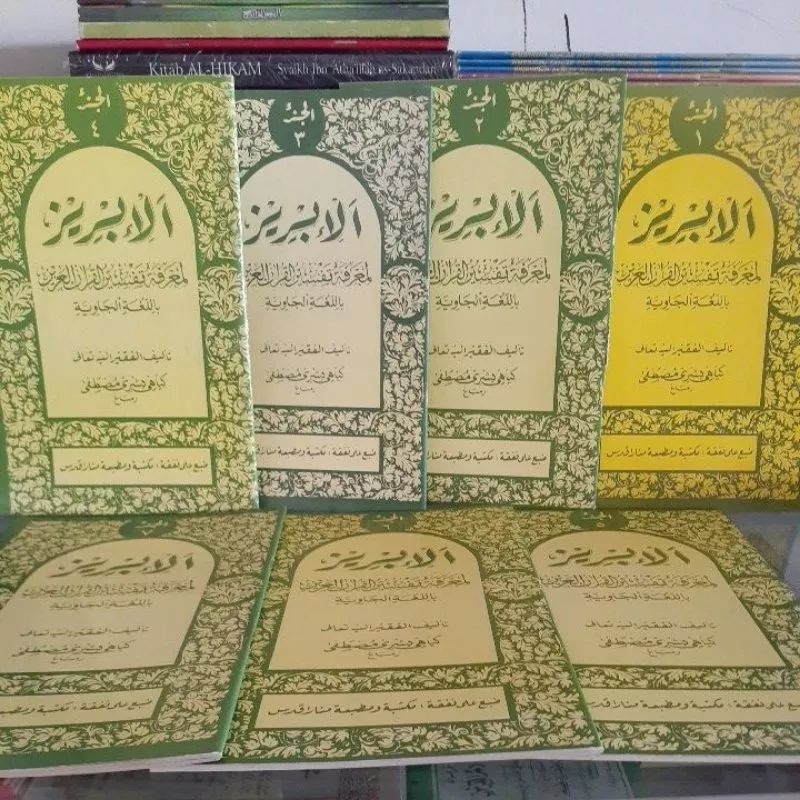 Kitab AL-HIKAM Syaikh Ibn 'Atha'illah as-Sakandari
الجزء
٤
الإبريز
لمعرفة تفسير القرآن العزيز
باللغة الجاوية
تأليف الفقير اليه تعالى
كياهي بشري مصطفى
رمباڠ
طبع على نفقة : مكتبة ومطبعة منارا قدس
الجزء
٣
الإبريز
لمعرفة تفسير القرآن العزيز
باللغة الجاوية
تأليف الفقير اليه تعالى
كياهي بشري مصطفى
رمباڠ
طبع على نفقة : مكتبة ومطبعة منارا قدس
الجزء
٢
الإبريز
لمعرفة تفسير القرآن العزيز
باللغة الجاوية
تأليف الفقير اليه تعالى
كياهي بشري مصطفى
رمباڠ
مكتبة ومطبعة منارا قدس
الجزء
١
الإبريز
لمعرفة تفسير القرآن العزيز
باللغة الجاوية
تأليف الفقير اليه تعالى
كياهي بشري مصطفى
رمباڠ
طبع على نفقة : مكتبة ومطبعة منارا قدس
الإبريز
لمعرفة تفسير القرآن العزيز
باللغة الجاوية
تأليف الفقير اليه تعالى
كياهي بشري مصطفى
رمباڠ
طبع على نفقة : مكتبة ومطبعة
الإبريز
لمعرفة تفسير القرآن العزيز
باللغة الجاوية
تأليف الفقير اليه تعالى
كياهي بشري مصطفى
رمباڠ
طبع على نفقة : مكتبة ومطبعة منارا قدس
٥
الإبريز
لمعرفة تفسير القرآن العزيز
باللغة الجاوية
تأليف الفقير اليه تعالى
كياهي بشري مصطفى
رمباڠ
طبع على نفقة : مكتبة ومطبعة منارا قدس